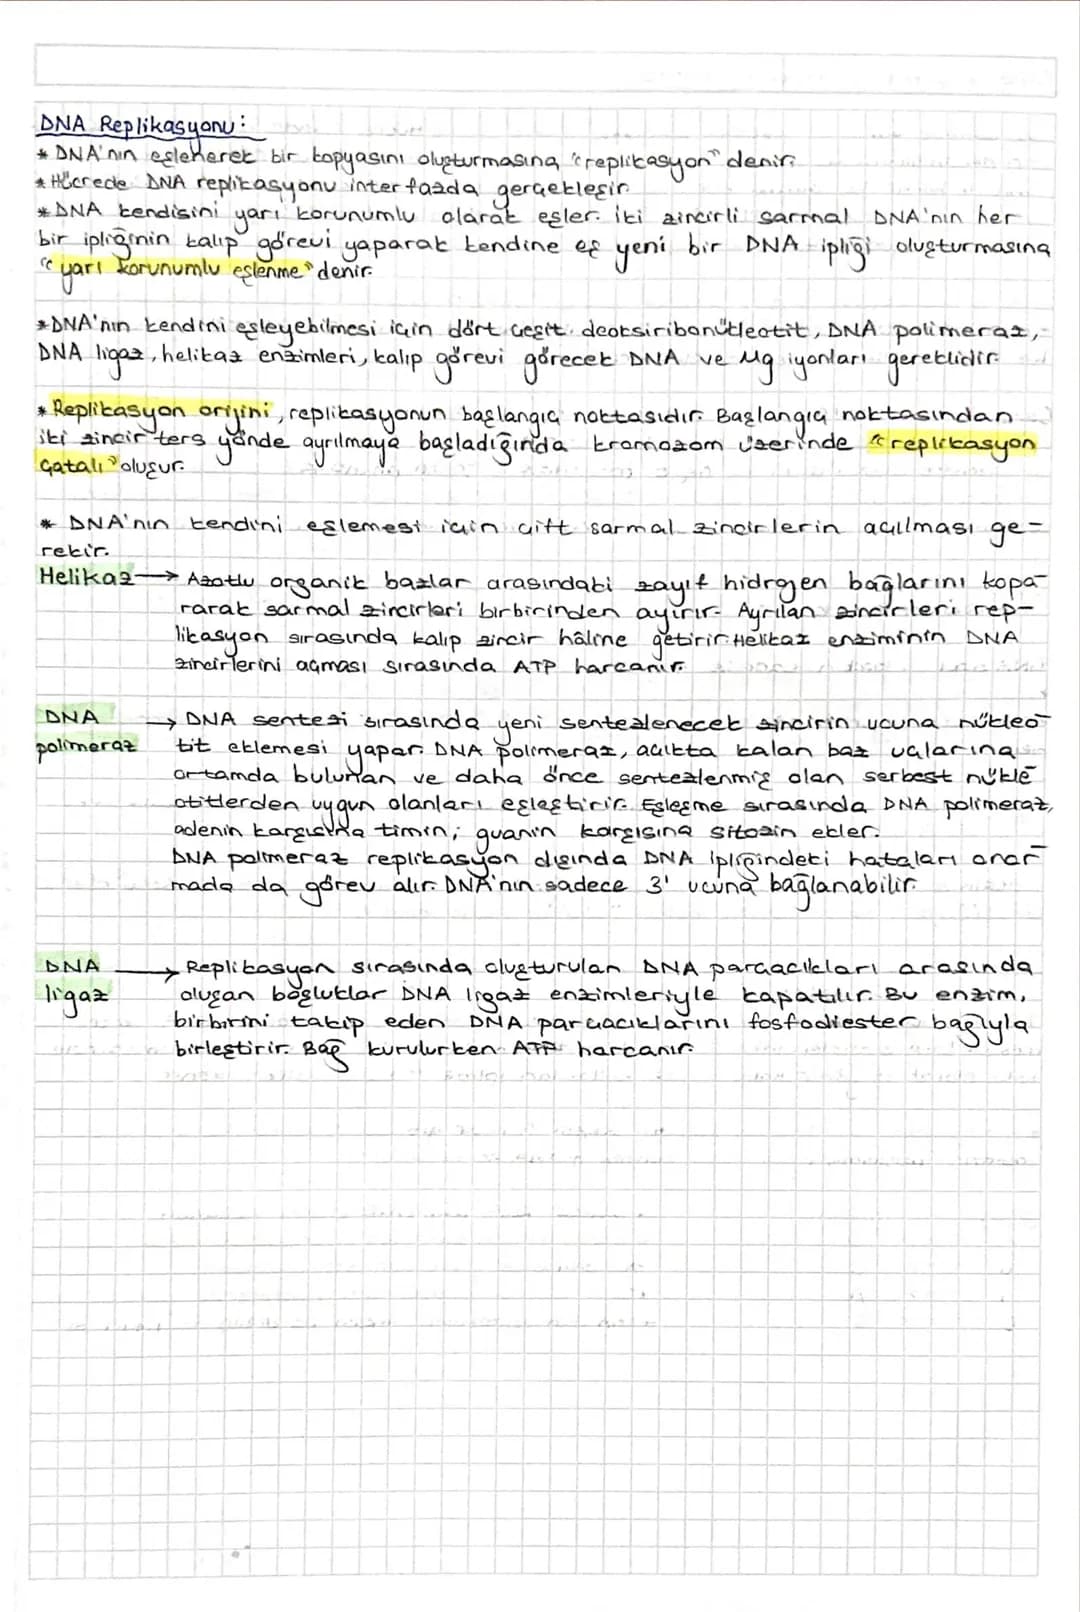 DNA Replikasyonu:
* DNA'nın eşlenerek bir kopyasını oluşturmasına "replikasyon" denir.
* Hücrede DNA replikasyonu interfazda gerçekleşir.
* DNA kendisini yarı korunumlu olarak eşler. İki zincirli sarmal DNA'nın her
bir ipliğinin kalıp görevi yaparak kendine eş yeni bir DNA ipliği oluşturmasına
"yarı korunumlu eşlenme" denir.
* DNA'nın kendini eşleyebilmesi için dört çeşit deoksiribonükleotit, DNA polimeraz,
DNA ligaz, helikaz enzimleri, kalıp görevi görecek DNA ve Mg iyonları gereklidir.
* Replikasyon orijini, replikasyonun başlangıç noktasıdır. Başlangıç noktasından
iki zincir ters yönde ayrılmaya başladığında kromozom üzerinde "replikasyon
çatalı" oluşur.
* DNA'nın kendini eşlemesi için çift sarmal zincirlerin açılması ge-
rekir.
Helikaz → Azotlu organik bazlar arasındaki zayıf hidrojen bağlarını kopa-
rarak sarmal zincirleri birbirinden ayırır. Ayrılan zincirleri rep-
likasyon sırasında kalıp zincir hâline getirir. Helikaz enziminin DNA
zincirlerini açması sırasında ATP harcanır.
DNA polimeraz → DNA sentezi sırasında yeni sentezlenecek zincirin ucuna nükleo-
tit eklemesi yapar. DNA polimeraz, açıkta kalan baz uçlarına
ortamda bulunan ve daha önce sentezlenmiş olan serbest nükle-
otitlerden uygun olanları eşleştirir. Eşleşme sırasında DNA polimeraz,
adenin karşısına timin; guanin karşısına sitozin ekler.
DNA polimeraz replikasyon dışında DNA ipliğindeki hataları onar-
mada da görev alır. DNA'nın sadece 3' ucuna bağlanabilir.
DNA ligaz → Replikasyon sırasında oluşturulan DNA parçacıkları arasında
oluşan boşluklar DNA ligaz enzimleriyle kapatılır. Bu enzim,
birbirini takip eden DNA parçacıklarını fosfodiester bağıyla
birleştirir. Bağ kurulurken ATP harcanır.